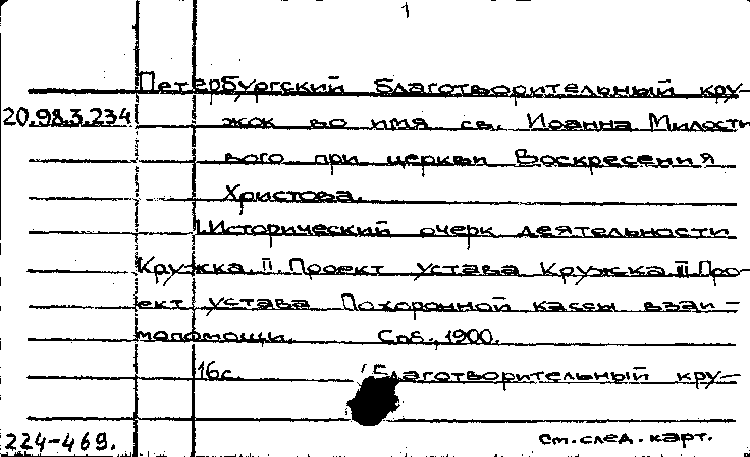 1
Петербургский благотворительный кру-
20.98.3.234 жок во имя св. Иоанна Милости
вого при церкви Воскресения
Христова.
I.Исторический очерк деятельности
Кружка.II.Проект устава Кружка.III.Про-
ект устава Похоронной кассы взаи-
мопомощи. Спб.,1900.
16с. (Благотворительный кру-
224-469. См.след.карт.